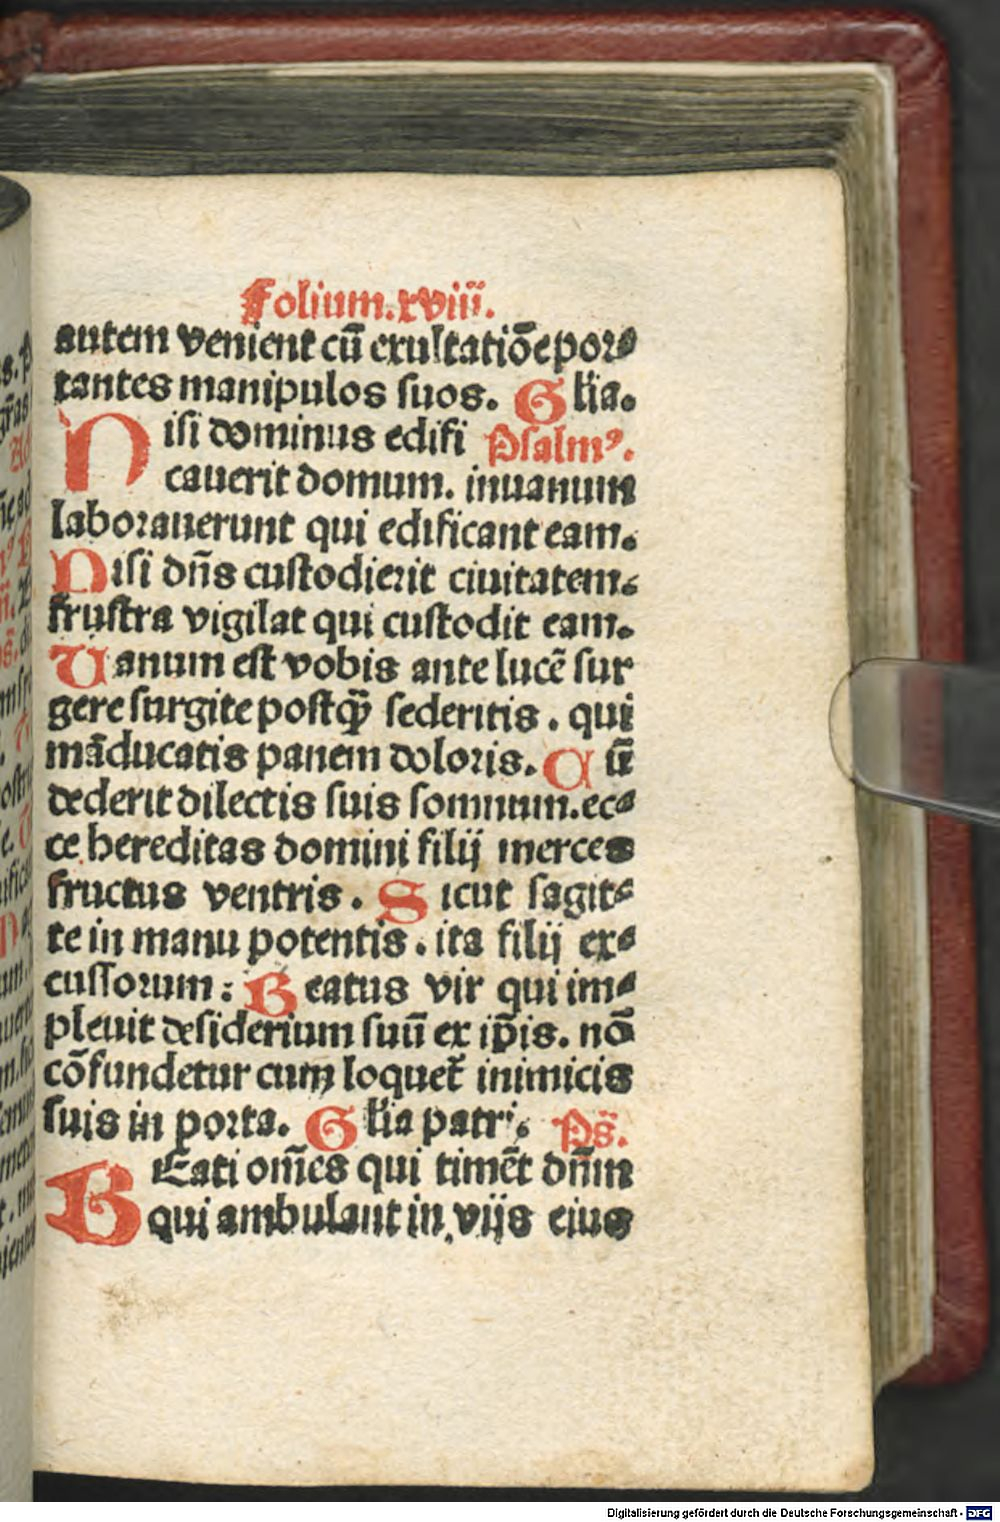 Folium.xviii.
autem venient cū exultatiōe por⸗
tantes manipulos suos. Glia.
Nisi dominus edifi Psalmꝰ.
cauerit domum. inuanum
laborauerunt qui edificant eam.
Nisi dn̄s custodierit ciuitatem.
frustra vigilat qui custodit eam.
Vanum est vobis ante lucē sur
gere surgite postqȝ̄ sederitis. qui
māducatis panem doloris. Cū
dederit dilectis suis somnum. ec⸗
ce hereditas domini filij merces
fructus ventris. Sicut sagit⸗
te in manu potentis. ita filij ex⸗
cussorum: Beatus vir qui im⸗
pleuit desiderium suū ex ip̄is. nō
cōfundetur cum loquet̄ inimicis
suis in porta. Glia patri. Ps̄.
BEati om̄es qui timēt dn̄m
qui ambulant in vijs eius
Digitalisierung gefördert durch die Deutsche Forschungsgemeinschaft - DFG